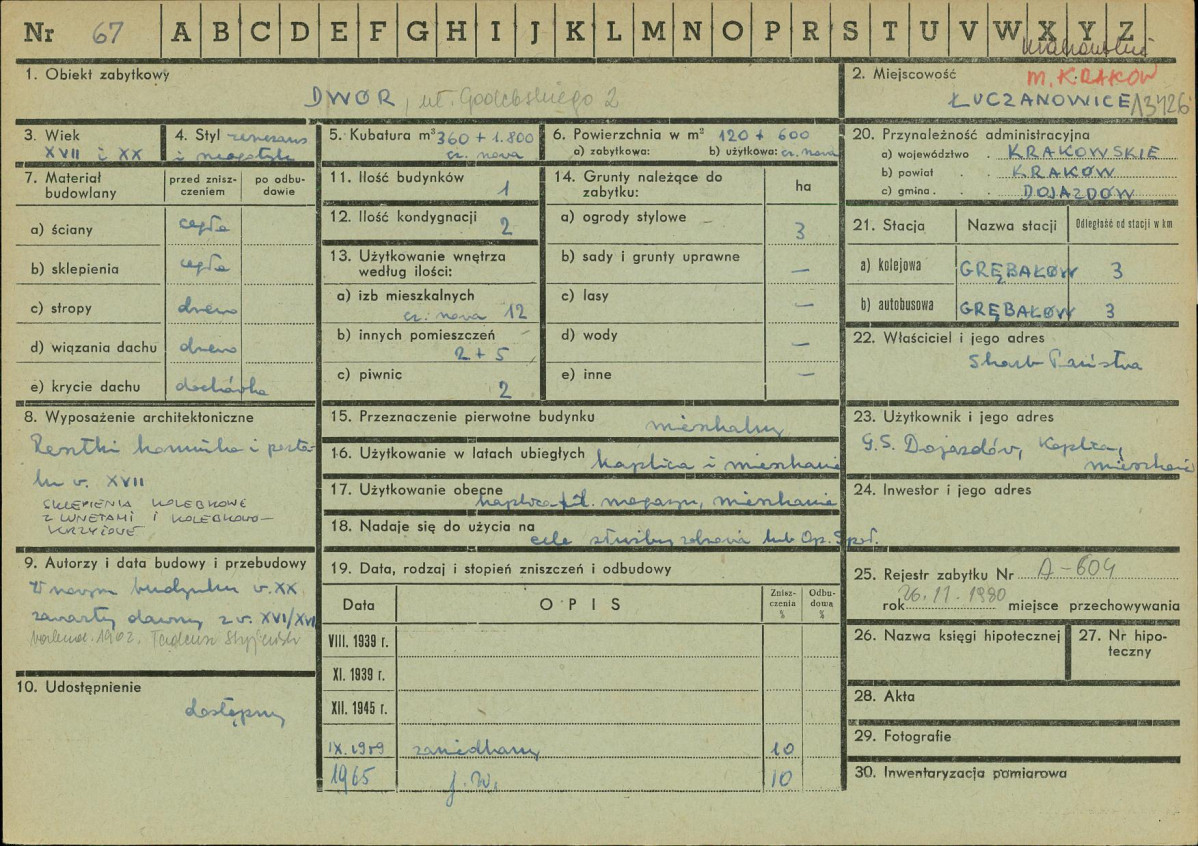 Nr 67 A B C D E F G H I J K L M N O P R S T U V W X Y Z
Krakowskie
1. Obiekt zabytkowy
DWÓR, ul. Godebskiego 2
2. Miejscowość
m. KRAKÓW
ŁUCZANOWICE A3426
3. Wiek
XVII i XX
4. Styl renesans
i neogotyk
5. Kubatura m³ 360 + 1.800
cz. nowa
6. Powierzchnia w m² 120 + 600
a) zabytkowa: b) użytkowa: cz. nowa
7. Materiał budowlany
przed zniszczeniem
po odbudowie
a) ściany cegła
b) sklepienia cegła
c) stropy drewno
d) wiązania dachu drewno
e) krycie dachu dachówka
8. Wyposażenie architektoniczne
Resztki kominka i porta-
lu w. XVII
SKLEPIENIA KOLEBKOWE
Z LUNETAMI I KOLEBKOWO-
KRZYŻOWE
9. Autorzy i data budowy i przebudowy
W nowym budynku w. XX
zawarty dawny z w. XVI/XVII
1902. Tadeusz Stryjeński
10. Udostępnienie
dostępny
11. Ilość budynków 1
12. Ilość kondygnacji 2
13. Użytkowanie wnętrza
według ilości:
a) izb mieszkalnych
cz. nowa 12
b) innych pomieszczeń
2 + 5
c) piwnic 2
14. Grunty należące do
zabytku:
ha
a) ogrody stylowe – 3
b) sady i grunty uprawne —
c) lasy —
d) wody —
e) inne —
15. Przeznaczenie pierwotne budynku mieszkalny
16. Użytkowanie w latach ubiegłych kaplica i mieszkanie
17. Użytkowanie obecne kaplica, magazyn, mieszkanie
18. Nadaje się do użycia na cele służby zdrowia lub Op. Społ.
19. Data, rodzaj i stopień zniszczeń i odbudowy
Data
OPIS
Zniszczenia %
Odbudowa %
VIII. 1939 r.
XI. 1939 r.
XII. 1945 r.
IX. 1959 zaniedbany 10
1965 j. w. 10
20. Przynależność administracyjna
a) województwo . KRAKOWSKIE
b) powiat . . KRAKÓW
c) gmina . . DOJAZDÓW
21. Stacja
Nazwa stacji
Odległość od stacji w km
a) kolejowa GRĘBAŁÓW 3
b) autobusowa GRĘBAŁÓW 3
22. Właściciel i jego adres
Skarb Państwa
23. Użytkownik i jego adres
G.S. Dojazdów, Kaplica,
mieszkanie
24. Inwestor i jego adres
25. Rejestr zabytku Nr A-604
rok 26.11.1980 miejsce przechowywania
26. Nazwa księgi hipotecznej
27. Nr hipo-
teczny
28. Akta
29. Fotografie
30. Inwentaryzacja pomiarowa